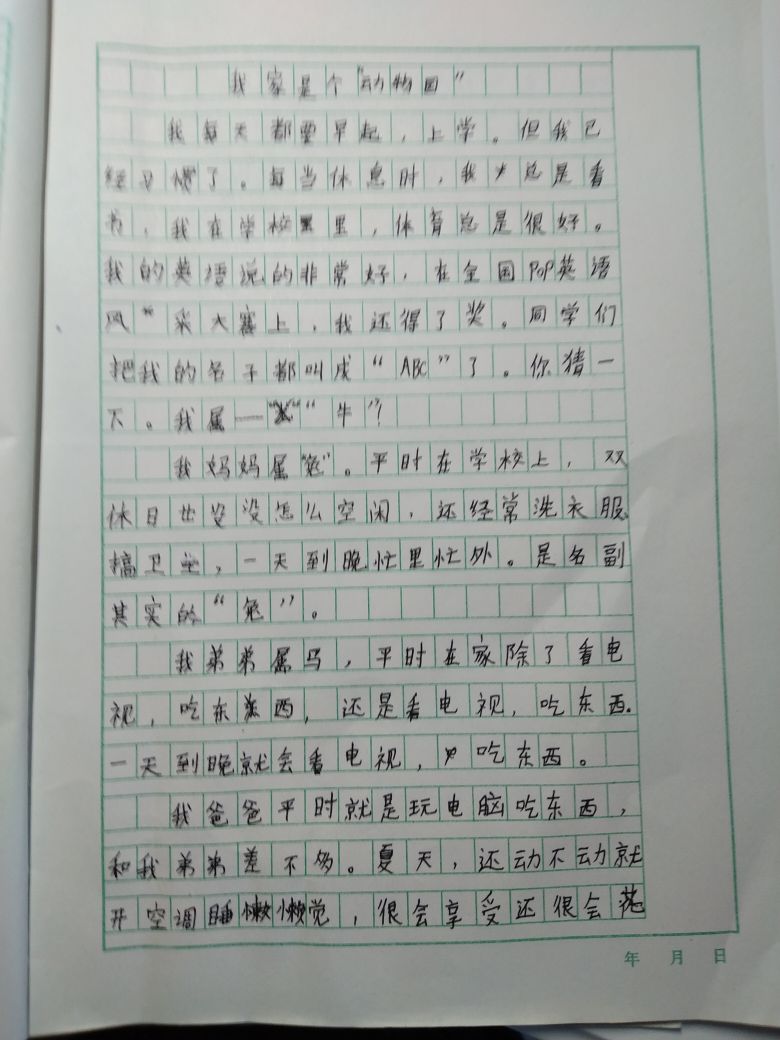 我家是个“动物园”
我每天都要早起，上学。但我已
经习惯了。每当休息时，我总是看
书，我在学校里，体育总是很好。
我的英语说的非常好，在全国PoP英语
风采大赛上，我还得了奖。同学们
把我的名子都叫成“ABC”了。你猜一
下。我属—“牛”？
我妈妈属“兔”。平时在学校上，双
休日也没怎么空闲，还经常洗衣服
搞卫生，一天到晚忙里忙外。是名副
其实的“兔”。
我弟弟属马，平时在家除了看电
视，吃东西，还是看电视，吃东西.
一天到晚就会看电视，吃东西。
我爸爸平时就是玩电脑吃东西，
和我弟弟差不多。夏天，还动不动就
开空调睡懒觉，很会享受还很会花
年 月 日